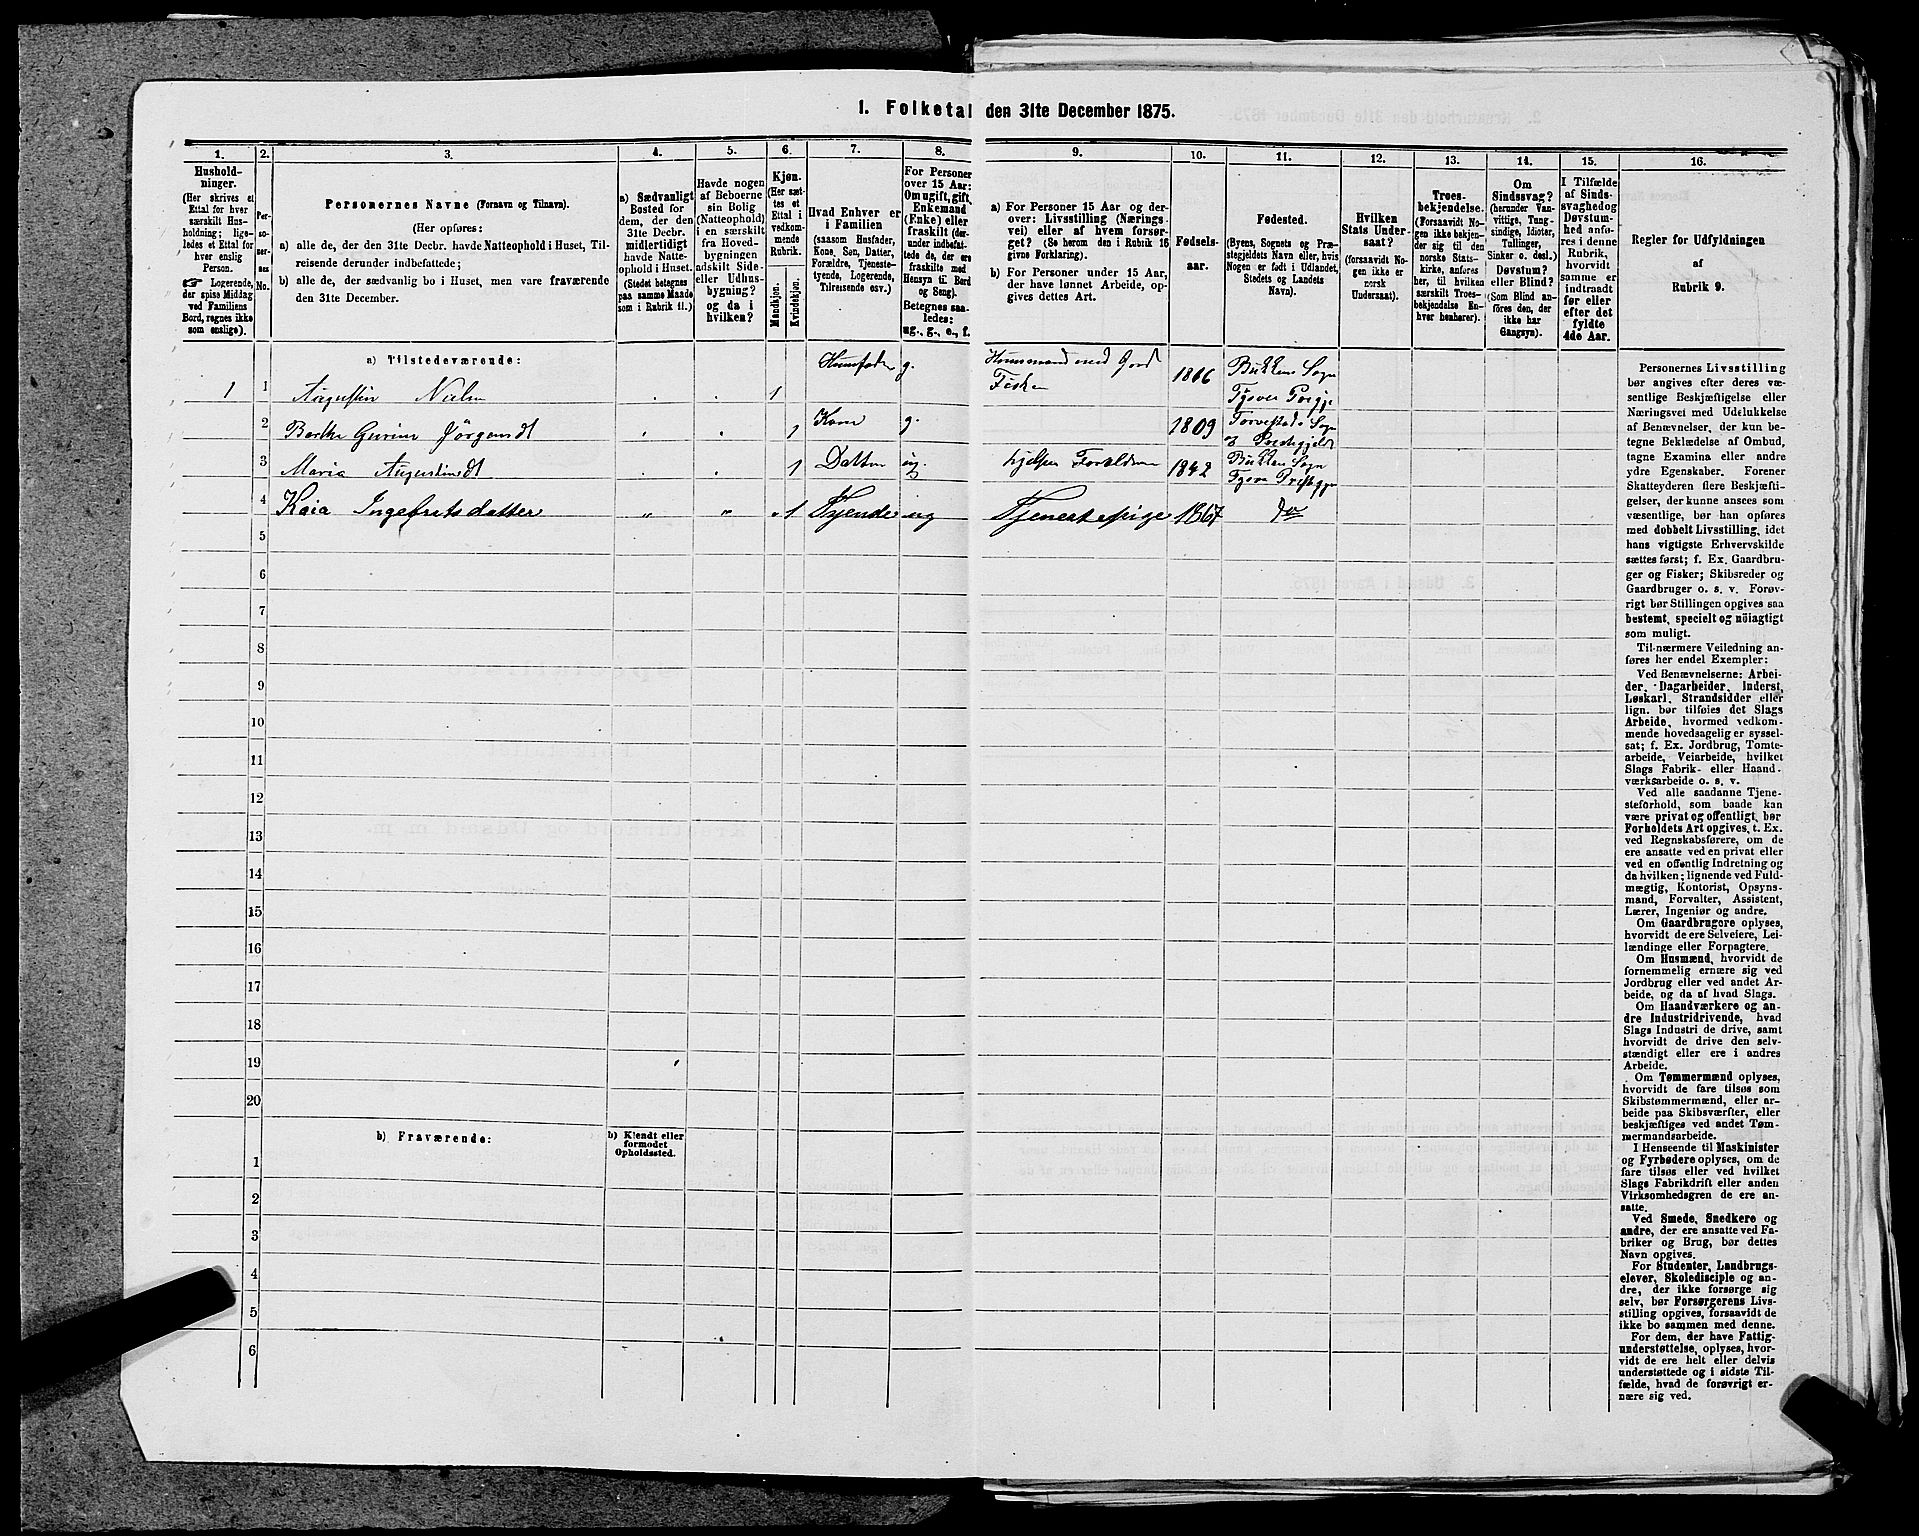 1. Folketal den 31te December 1875.
1. 2. 3. 4. 5. 6. 7. 8. 9. 10. 11. 12. 13. 14. 15. 16.
Hushold-
ninger.
(Her skrives et
Ettal for hver
særskilt Hus-
holdning; lige-
ledes et Ettal for
hver enslig
Person.
☛ Logerende,
der spise Middag
ved Familiens
Bord, regnes ikke
som enslige).
Per-
so-
ner-
nes
No.
Personernes Navne (Fornavn og Tilnavn).
(Her opføres:
a) alle de, der den 31te Decbr. havde Natteophold i Huset, Til-
reisende derunder indbefattede;
b) alle de, der sædvanlig bo i Huset, men vare fraværende
den 31te December.
a) Sædvanligt
Bosted for
dem, der den
31te Decbr.
midlertidigt
havde Natte-
ophold i Huset.
(Stedet betegnes
paa samme Maade
som i Rubrik 11.)
Havde nogen
af Beboerne
sin Bolig
(Natteophold)
i en særskilt
fra Hoved-
bygningen
adskilt Side-
eller Udhus-
bygning?
og da i
hvilken?
Kjøn.
(Her sæt-
tes et
Ettal i
vedkom-
mende
Rubrik.
Mandkjøn.
Kvindekjøn.
Hvad Enhver er
i Familien
(saasom Husfader,
Kone, Søn, Datter,
Forældre, Tjeneste-
tyende, Logerende,
Tilreisende osv.)
For Personer
over 15 Aar:
Om ugift, gift,
Enkemand
(Enke) eller
fraskilt (der-
under indbefat-
tede de, der ere
fraskilte med
Hensyn til Bord
og Seng).
Betegnes saa-
ledes:
ug., g., e., f.
a) For Personer 15 Aar og der-
over: Livsstilling (Nærings-
vei) eller af hvem forsør-
get? (Se herom den i Rubrik 16
givne Forklaring).
b) For Personer under 15 Aar,
der have lønnet Arbeide, op-
gives dettes Art.
Fødsels-
aar.
Fødested.
(Byens, Sognets og Præ-
stegjeldets Navn eller, hvis
Nogen er født i Udlandet,
Stedets og Landets
Navn).
Hvilken
Stats Under-
saat?
(forsaavidt No-
gen ikke er
norsk
Undersaat).
Troes-
bekjendelse.
(Forsaavidt No-
gen ikke bekjen-
der sig til den
norske Stats-
kirke, anføres
her, til hvilken
særskilt Troes-
bekjendelse En-
hver henhører).
Om
Sindssvag?
(herunder Van-
vittige, Tung-
sindige, Idioter,
Tullinger,
Sinker o. desl.)
Døvstum?
eller Blind?
(Som Blind an-
føres den, der
ikke har
Gangsyn).
I Tilfælde
af Sinds-
svaghed og
Døvstum-
hed anfø-
res i denne
Rubrik,
hvorvidt
samme er
indtraadt
før eller
efter det
fyldte
4de Aar.
Regler for Udfyldningen
af
Rubrik 9.
a) Tilstedeværende:
1 1 Augustin 1 g. Huusmand med Jord Fisker Bukken Sogn
2 Berthe Gurine Jörgensdt 1 Kone g. 1809 Torvestads Sogn & Prestegjeld
3 Maria Augustinsdt 1 Datter ug. hjelper Foreldrene 1842 Bukken Sogn
4 Kaia Ingefritsdatter „ „ 1 Tyende ug Tjenestepige 1867 do
5
6
7
8
9
10
11
12
13
14
15
16
17
18
19
20
b) Fraværende:
b) Kjendt eller
formodet
Opholdssted.
1
2
3
4
5
6
Personernes Livsstilling
bør angives efter deres væ-
sentlige Beskjæftigelse eller
Næringsvei med Udelukkelse
af Benævnelser, der kun be-
tegne Beklædelse af Ombud,
tagne Examina eller andre
ydre Egenskaber. Forener
Skatteyderen flere Beskjæfti-
gelser, der kunne ansees som
væsentlige, bør han opføres
med dobbelt Livsstilling, idet
hans vigtigste Erhvervskilde
sættes først; f. Ex. Gaardbru-
ger og Fisker; Skibsreder og
Gaardbruger o. s. v. Forøv-
rigt bør Stillingen opgives saa
bestemt, specielt og nöiagtigt
som muligt.
Til nærmere Veiledning an-
føres her endel Exempler:
Ved Benævnelserne: Arbei-
der, Dagarbeider, Inderst,
Løskarl, Strandsidder eller
lign. bør tilføies det Slags
Arbeide, hvormed vedkom-
mende hovedsagelig er syssel-
sat; f. Ex. Jordbrug, Tomte-
arbeide, Veiarbeide, hvilket
Slags Fabrik- eller Haand-
værksarbeide o. s. v.
Ved alle saadanne Tjene-
steforhold, som baade kan
være privat og offentligt, bør
Forholdets Art opgives, t. Ex.
ved Regnskabsførere, om de
ere ansatte ved en privat eller
ved en offentlig Indretning og
da hvilken; lignende ved Fuld-
mægtig, Kontorist, Opsyns-
mand, Forvalter, Assistent,
Lærer, Ingeniør og andre.
Om Gaardbrugere oplyses,
hvorvidt de ere Selveiere, Lei-
lændinge eller Forpagtere.
Om Husmænd, hvorvidt de
fornemmelig ernære sig ved
Jordbrug eller ved andet Ar-
beide, og da af hvad Slags.
Om Haandværkere og an-
dre Industridrivende, hvad
Slags Industri de drive, samt
hvorvidt de drive den selv-
stændigt eller ere i andres
Arbeide.
Om Tømmermænd oplyses,
hvorvidt de fare tilsøs som
Skibstømmermænd, eller ar-
beide paa Skibsværfter, eller
beskjæftiges ved andet Tøm-
mermandsarbeide.
I Henseende til Maskinister
og Fyrbødere oplyses, om de
fare tilsøs eller ved hvilket
Slags Fabrikdrift eller anden
Virksomhedsgren de ere an-
satte.
Ved Smede, Snedkere og
andre, der ere ansatte ved Fa-
briker og Brug, bør dettes
Navn opgives.
For Studenter, Landbrugs-
elever, Skoledisciple og an-
dre, der ikke forsørge sig
selv, bør Forsørgerens Livs-
stilling opgives, forsaavidt de
ikke bo sammen med denne.
For dem, der have Fattig-
understøttelse, oplyses, hvor-
vidt de ere helt eller delvis
understøttede og i sidste Til-
fælde, hvad de forøvrigt er-
nære sig ved.